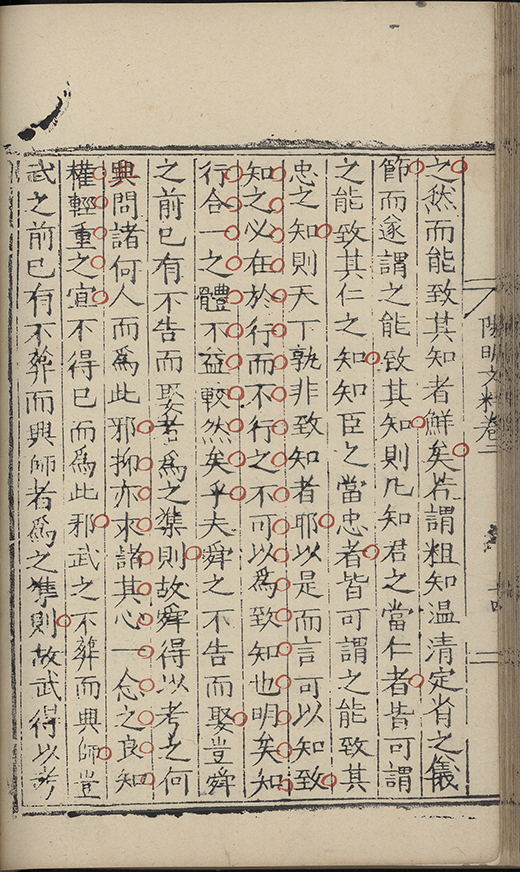 之然而能致其知者鮮矣若謂粗知温清定省之儀
節而遂謂之能致其知則凡知君之當仁者皆可謂
之能致其仁之知知臣之當忠者皆可謂之能致其
忠之知則天下孰非致知者耶以是而言可以知致
知之必在於行而不行之不可以為致知也明矣知
行合一之體不益較然矣乎夫舜之不告而娶豈舜
之前已有不告而娶者為之準則故舜得以考之何
典問諸何人而為此邪抑亦求諸其心一念之良知
權輕重之宜不得已而為此邪武之不葬而興師豈
武之前已有不葬而興師者為之準則故武得以考
陽明文粹卷二